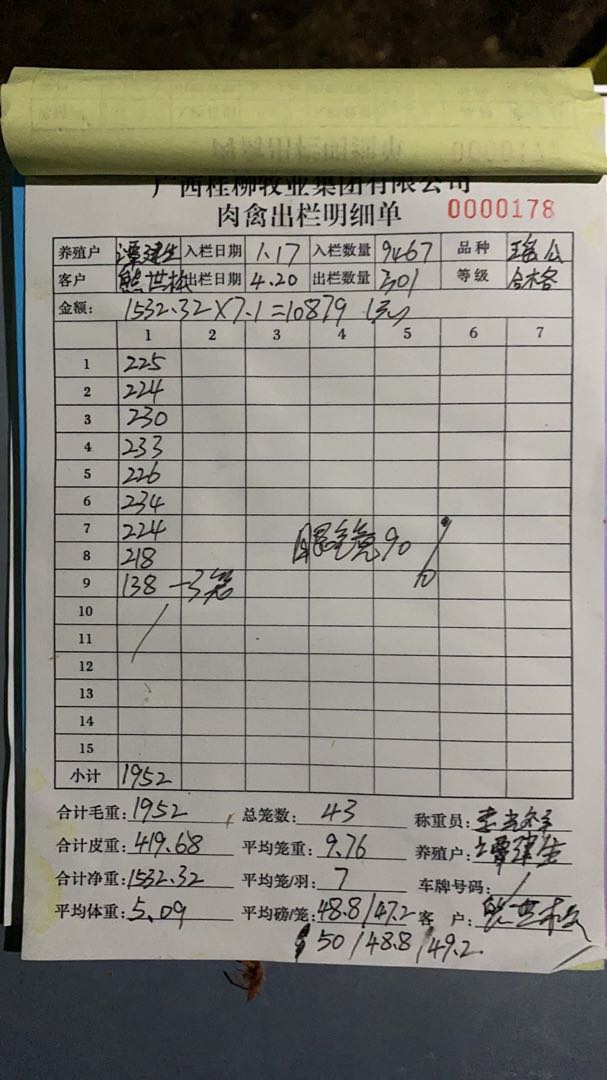 广西桂柳牧业集团有限公司
肉禽出栏明细单 0000178
养殖户 谭建生 入栏日期 1.17 入栏数量 9467 品种 瑶公
客户 熊世松 出栏日期 4.20 出栏数量 301 等级 合格
金额: 1532.32×7.1=10879元
1 2 3 4 5 6 7
1 225
2 224
3 230
4 233
5 226
6 234
7 224
8 218
9 138 一3笼
10
11
12
13
14
15
小计 1952
合计毛重: 1952 总笼数: 43 称重员:
合计皮重: 419.68 平均笼重: 9.76 养殖户: 谭建生
合计净重: 1532.32 平均笼/羽: 7 车牌号码: /
平均体重: 5.09 平均磅/笼: 48.8/47.2 客户: 熊世松
50/48.8/49.2